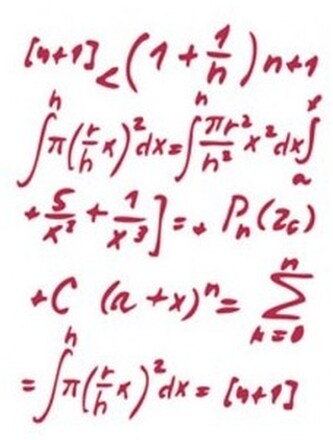 [n+1] < (1 + 1/n) n+1
∫ʰ π(r/h x)² dx = ∫ʰ πr²/h² x² dx ∫ₐˣ
+ 5/x² + 1/x³ ] = + Pₙ(z₆)
+ C (a + x)ⁿ = ∑ⁿₖ₌₀
= ∫ʰ π(r/h x)² dx = [n+1]